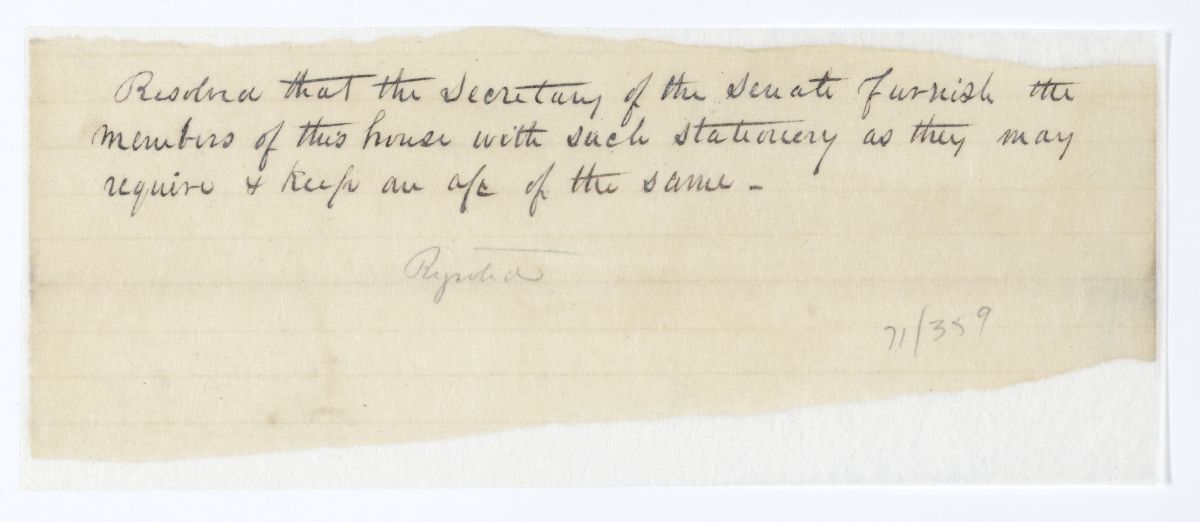 Resolved that the Secretary of the Senate furnish the
members of this house with such stationery as they may
require & keep an a/c of the same -
Rejected
71/359